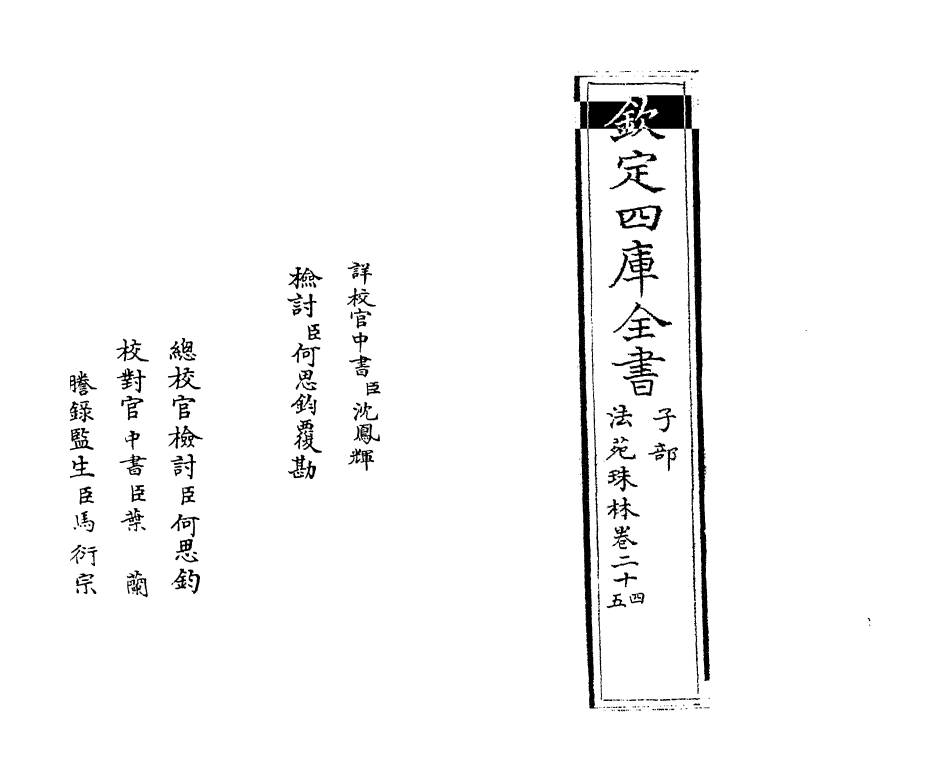 欽定四庫全書
子部
法苑珠林卷二十四
五
詳校官中書臣沈鳳輝
檢討臣何思鈞覆勘
總校官檢討臣何思鈞
校對官中書臣葉蘭
謄錄監生臣馬衍宗